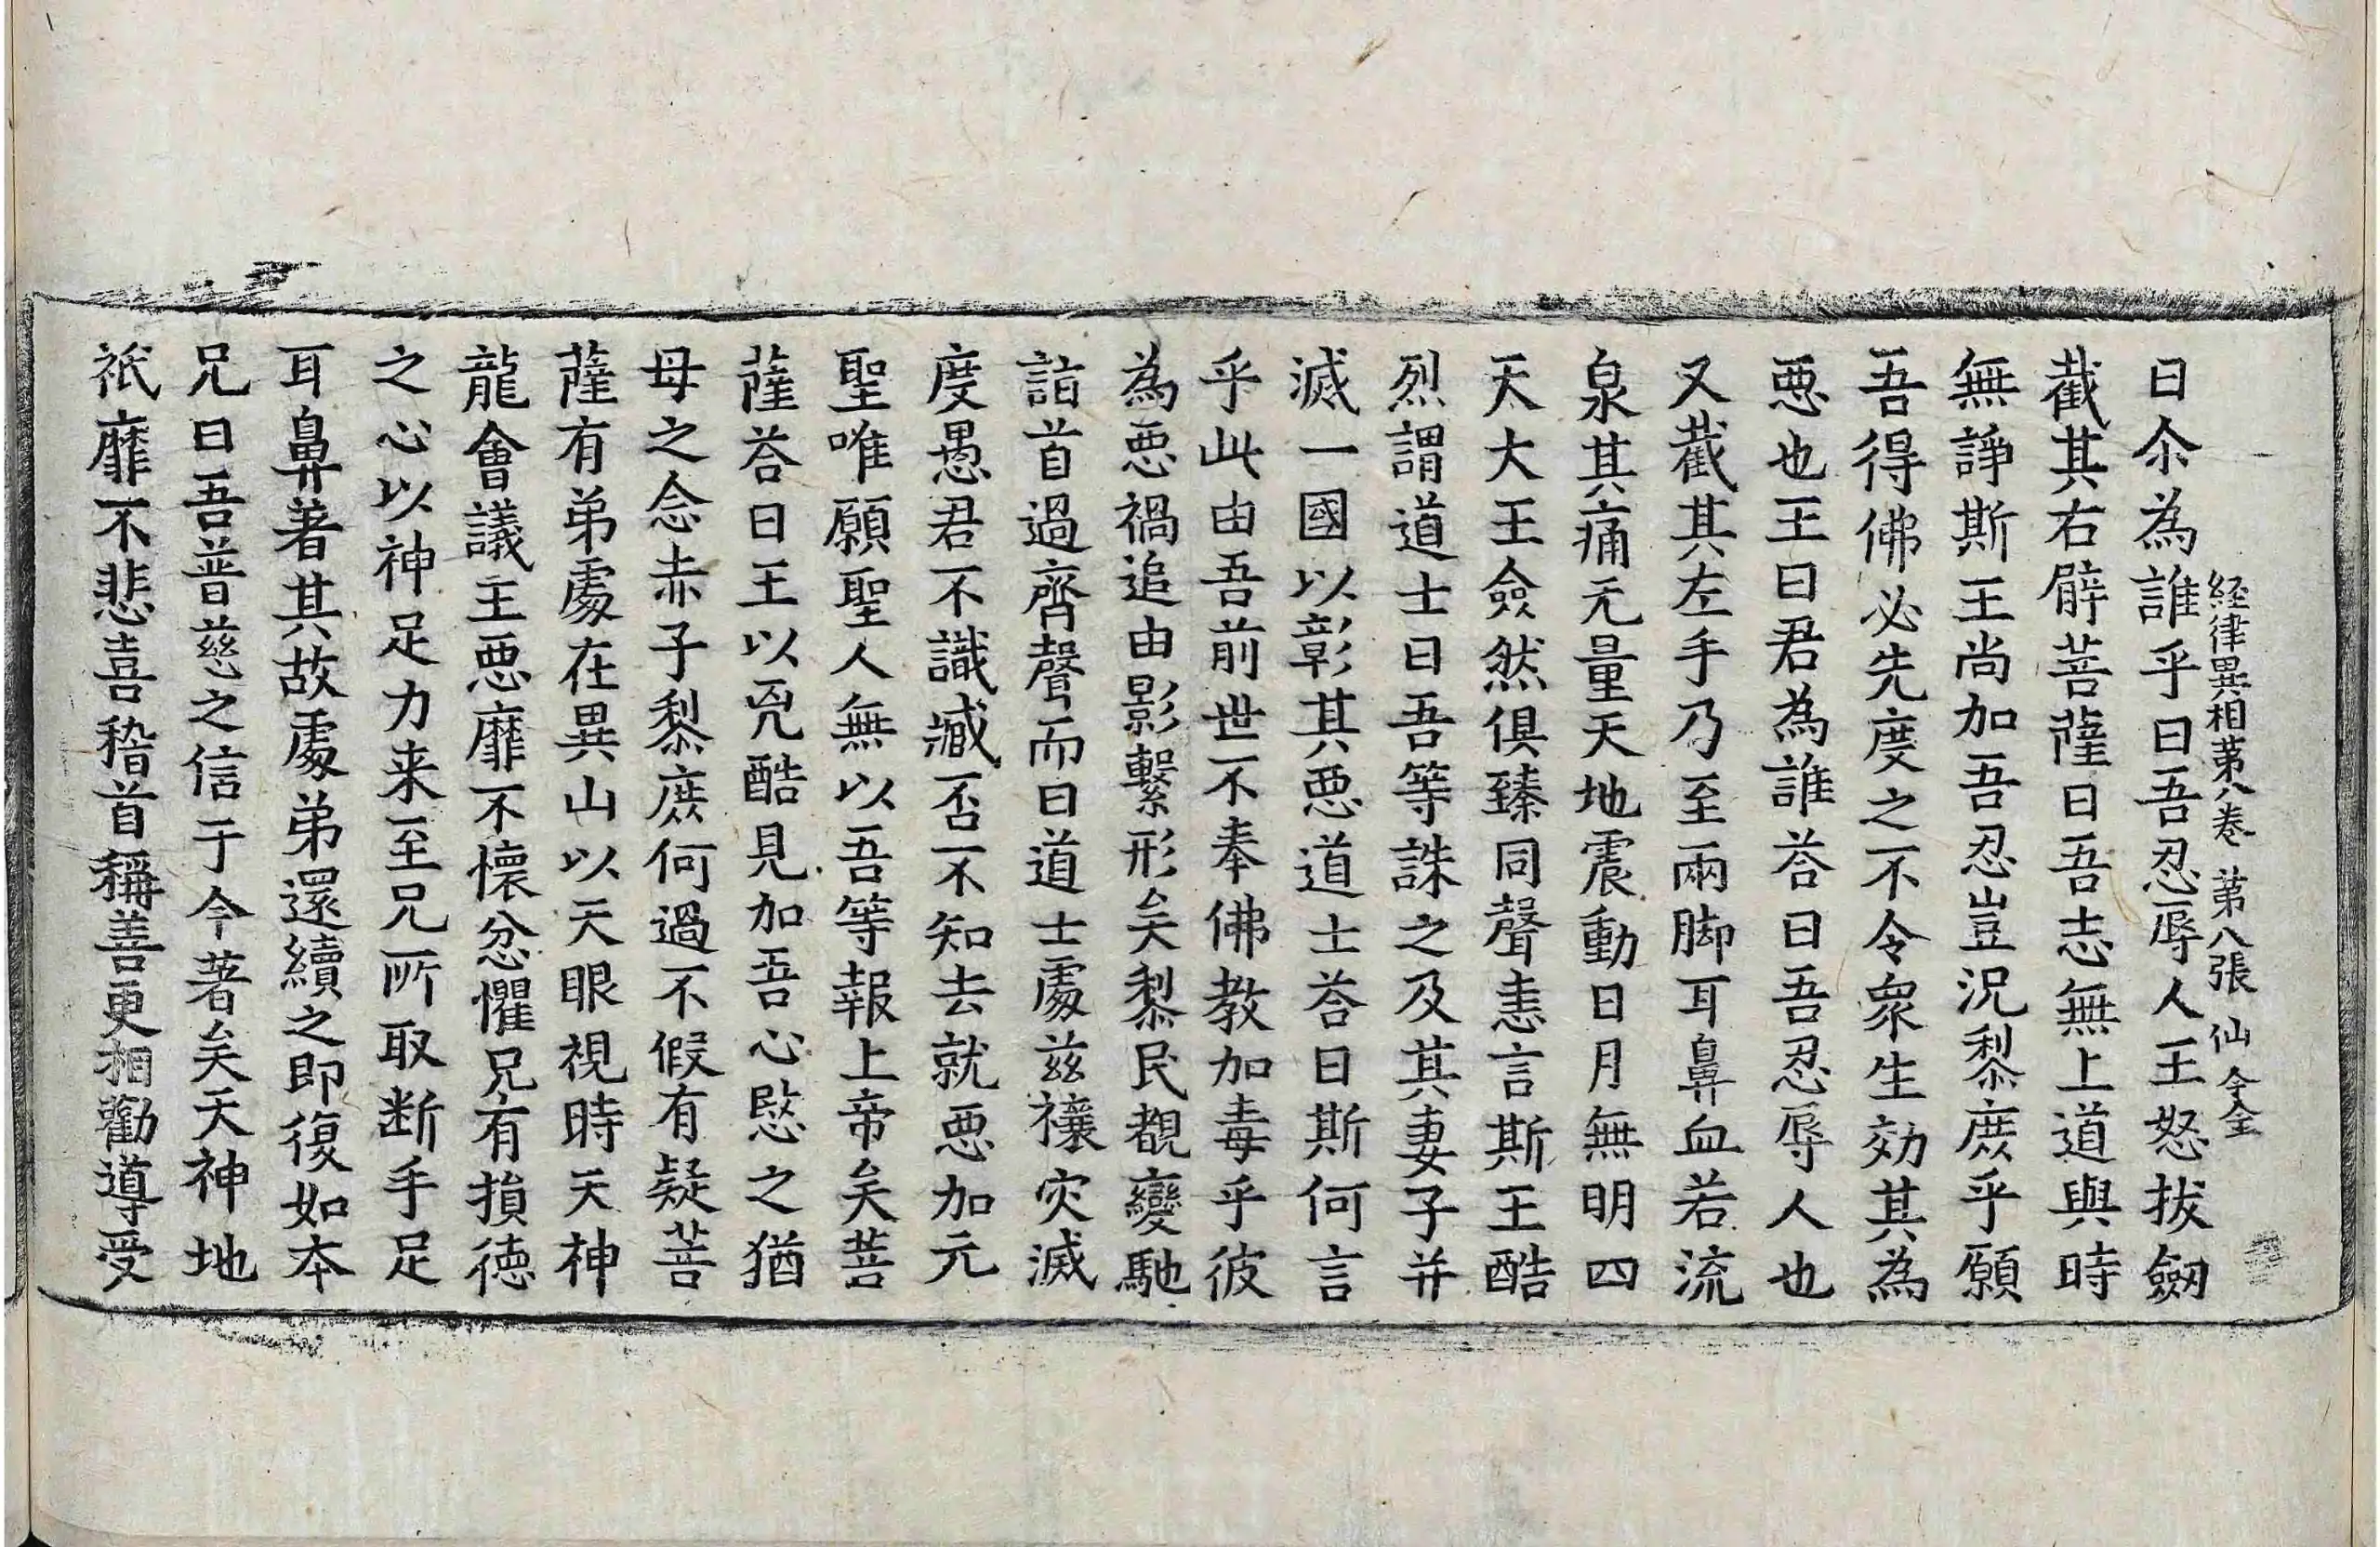 経律異相第八卷　第八張　仙　金
曰尒為誰乎曰吾忍辱人王怒拔劒
截其右臂菩薩曰吾志無上道與時
無諍斯王尚加吾忍豈況黎庶乎願
吾得佛必先度之不令衆生効其為
悪也王曰君為誰荅曰吾忍辱人也
又截其左手乃至兩脚耳鼻血若流
泉其痛无量天地震動日月無明四
天大王僉然俱臻同聲恚言斯王酷
烈謂道士曰吾等誅之及其妻子并
滅一國以彰其悪道士荅曰斯何言
乎此由吾前世不奉佛教加毒乎彼
為悪禍追由影繫形矣黎民覩變馳
詣首過齊聲而曰道士處兹禳灾滅
度愚君不識臧否不知去就悪加元
聖唯願聖人無以吾等報上帝矣菩
薩荅曰王以兇酷見加吾心愍之猶
母之念赤子黎庶何過不假有疑菩
薩有弟處在異山以天眼視時天神
龍會議王悪靡不懷忿懼兄有損徳
之心以神足力来至兄所取断手足
耳鼻著其故處弟還續之即復如本
兄曰吾普慈之信于今著矣天神地
祇靡不悲喜稽首稱善更相勸導受